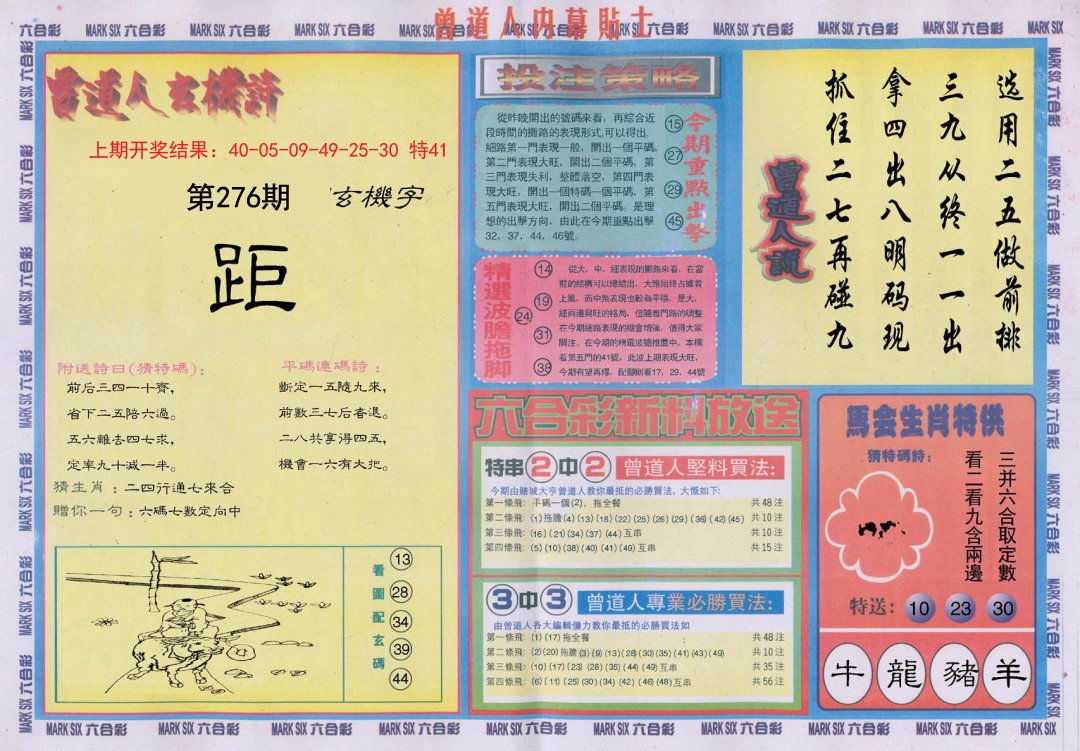 曾道人内幕貼士
MARK SIX 六合彩
曾道人玄機詩
上期开奖结果：40-05-09-49-25-30 特41
第276期
玄機字
距
附送詩曰(猜特碼)：
前后三四一十齊,
省下二五陪六過。
五六離去四七求,
定率九十減一半。
平碼連碼詩：
斷定一五隨九來,
前數三七后春退。
二八共享得四五,
機會一六有大把。
猜生肖：二四行通七來合
贈你一句：六碼七數定向中
看圖配玄碼
13
28
34
39
44
投注策略
從昨晚開出的號碼來看，再綜合近
段時間的攤路的表現形式,可以得出,
細路第一門表現一般，開出一個平碼,
第二門表現大旺，開出二個平碼，第
三門表現失利，整體落空，第四門表
現大旺，開出一個特碼一個平碼，第
五門表現大旺，開出二個平碼。是理
想的出擊方向，由此在今期重點出擊
32，37，44，46號。
15
27
29
45
今期重點出擊
精選波膽拖脚
14
19
24
31
38
從大，中，細表現的攤路來看，在當
前的結構可以總結出，大路始終占據着
上風，而中路表現也較為平穩，是大，
細両邊興旺的格局，但隨着門路的調整
在今期細路表現的機會增強，值得大家
關注，在今期的精選波膽推薦中，本欄
看第五門的41號，此波上期表現大旺，
今期有望再爆，配腳則看17、29、44號
六合彩新料放送
特串2中2 曾道人堅料買法:
今期由賭城大亨曾道人教你最抵的必勝買法，大慨如下:
第一條飛: 平碼一個(2)，拖全餐 共48注
第二條飛: (1)拖膽(4)(13)(18)(22)(25)(26)(29)(36)(42)(45) 共10注
第三條飛: (16)(21)(34)(37)(44)互串 共10注
第四條飛: (5)(10)(38)(40)(41)(49)互串 共15注
3中3 曾道人專業必勝買法:
由曾道人各大編輯僵力教你最抵的必勝買法如
第一條飛: (1)(17)拖全餐 共48注
第二條飛: (2)(20)拖膽(3)(9)(13)(28)(30)(35)(41)(43)(49) 共10注
第三條飛: (10)(17)(23)(28)(35)(44)(49)互串 共35注
第四條飛: (6)(11)(25)(30)(34)(42)(46)(48)互串 共56注
曾道人說
选用二五做前排
三九从终一一出
拿四出八明码现
抓住二七再碰九
馬会生肖特供
猜特碼詩:
三并六合取定數
看二看九含兩邊
特送: 10 23 30
牛 龍 豬 羊